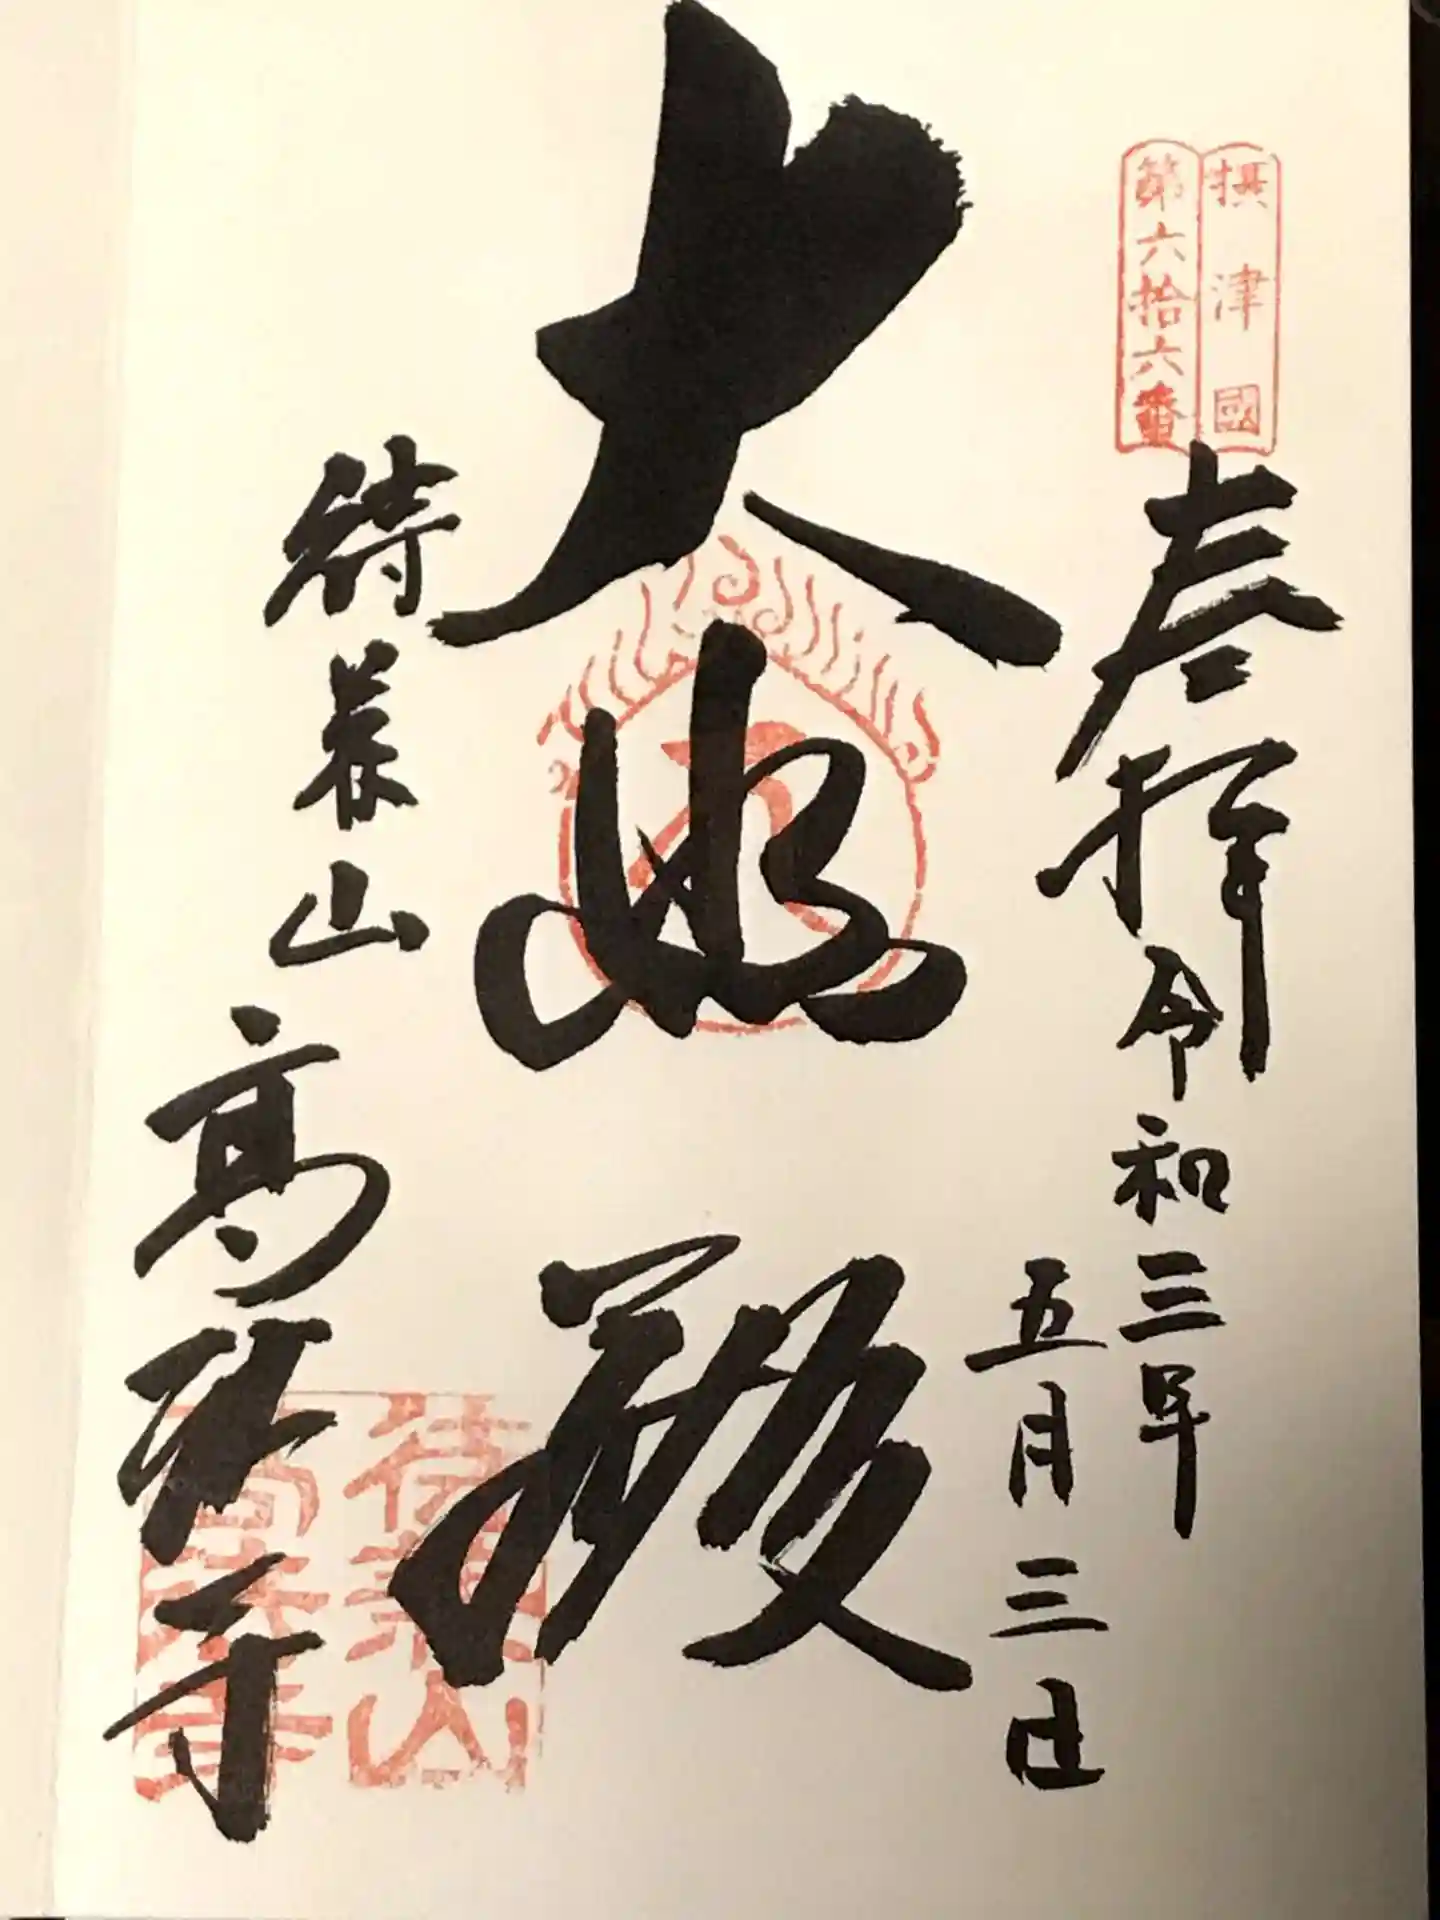 摂津國
第六拾六番
奉拝
令和三年
五月三日
大师殿
待兼山
高法寺
待兼山
高法寺